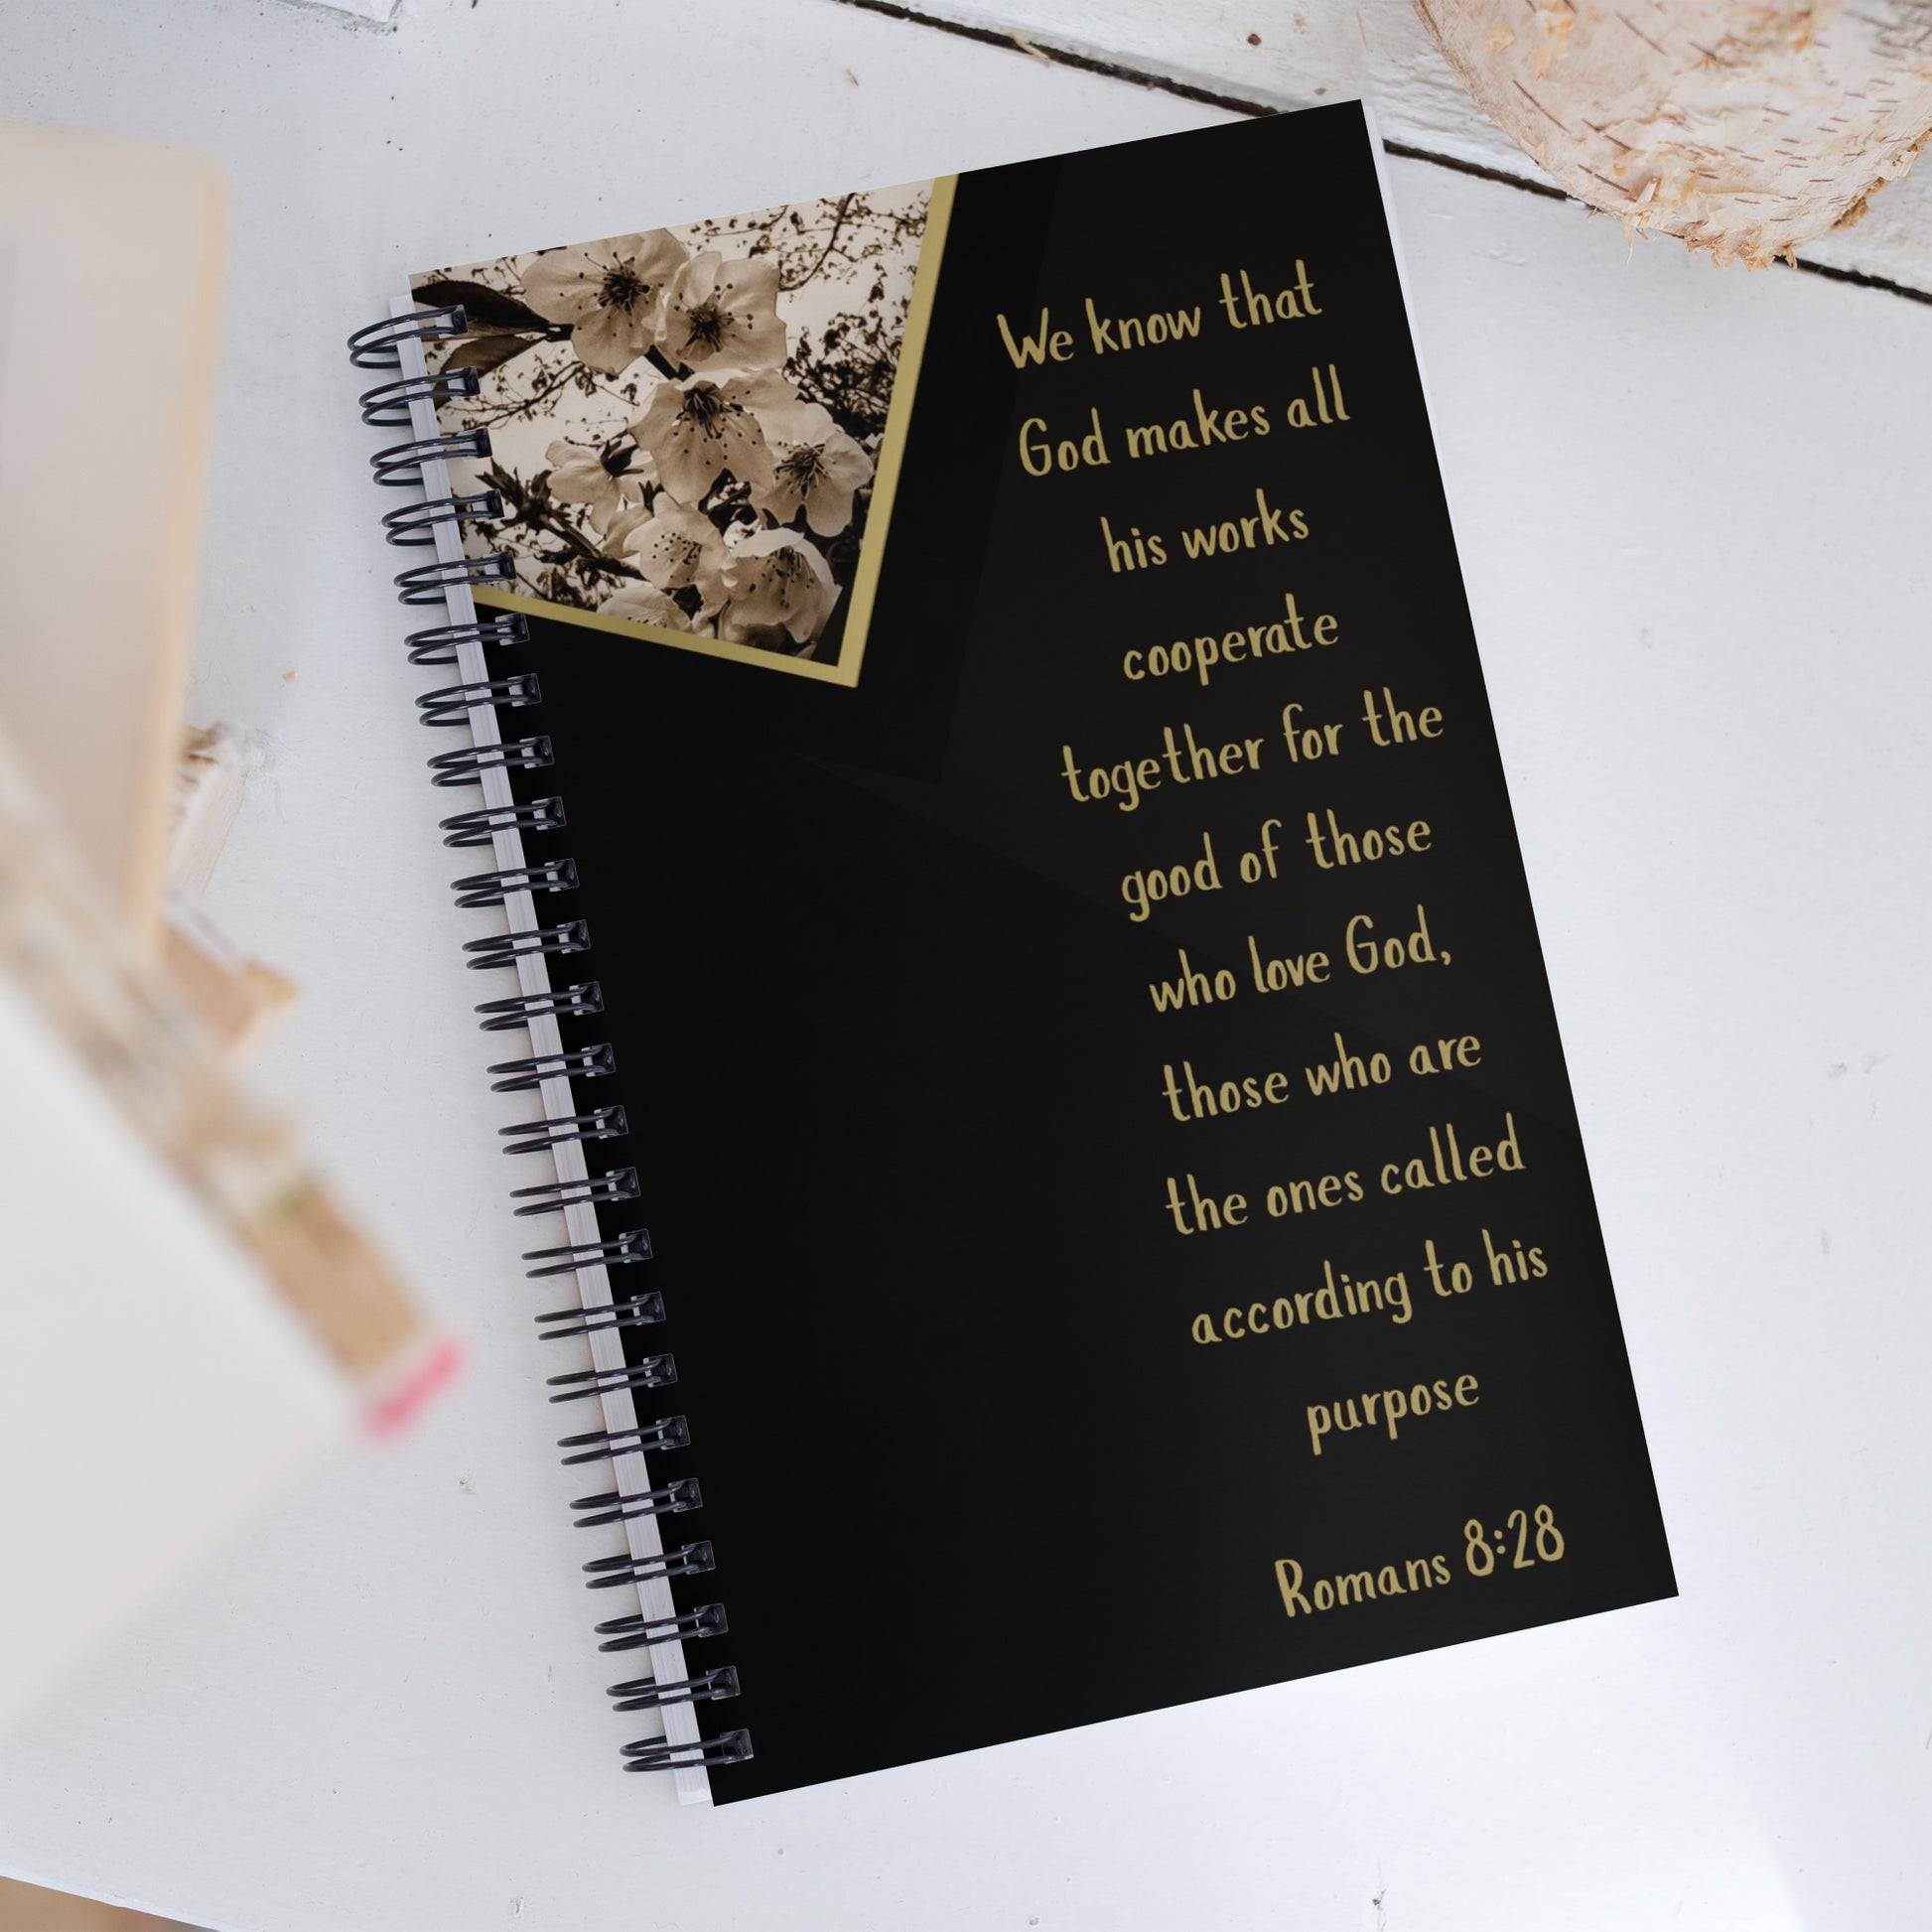 We know that
God makes all
his works
cooperate
together for the
good of those
who love God,
those who are
the ones called
according to his
purpose
Romans 8:28